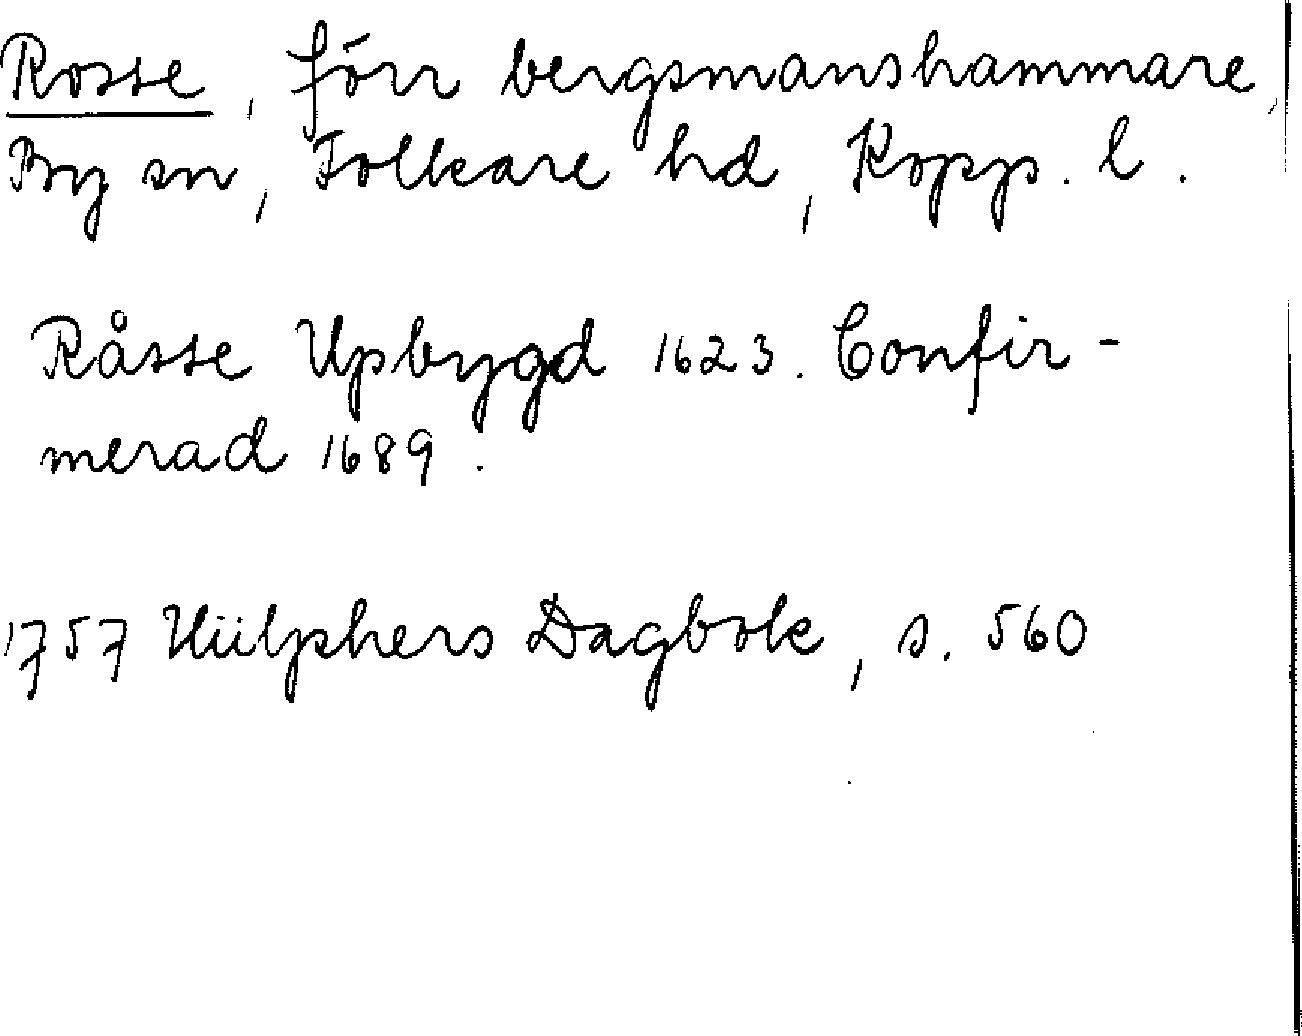 Rosse, förr bergsmanshammare,
By sn, Folkare hd, Kopp. l.
Råsse Upbygd 1623. Confir-
merad 1689.
1757 Hülphers Dagbok, s. 560